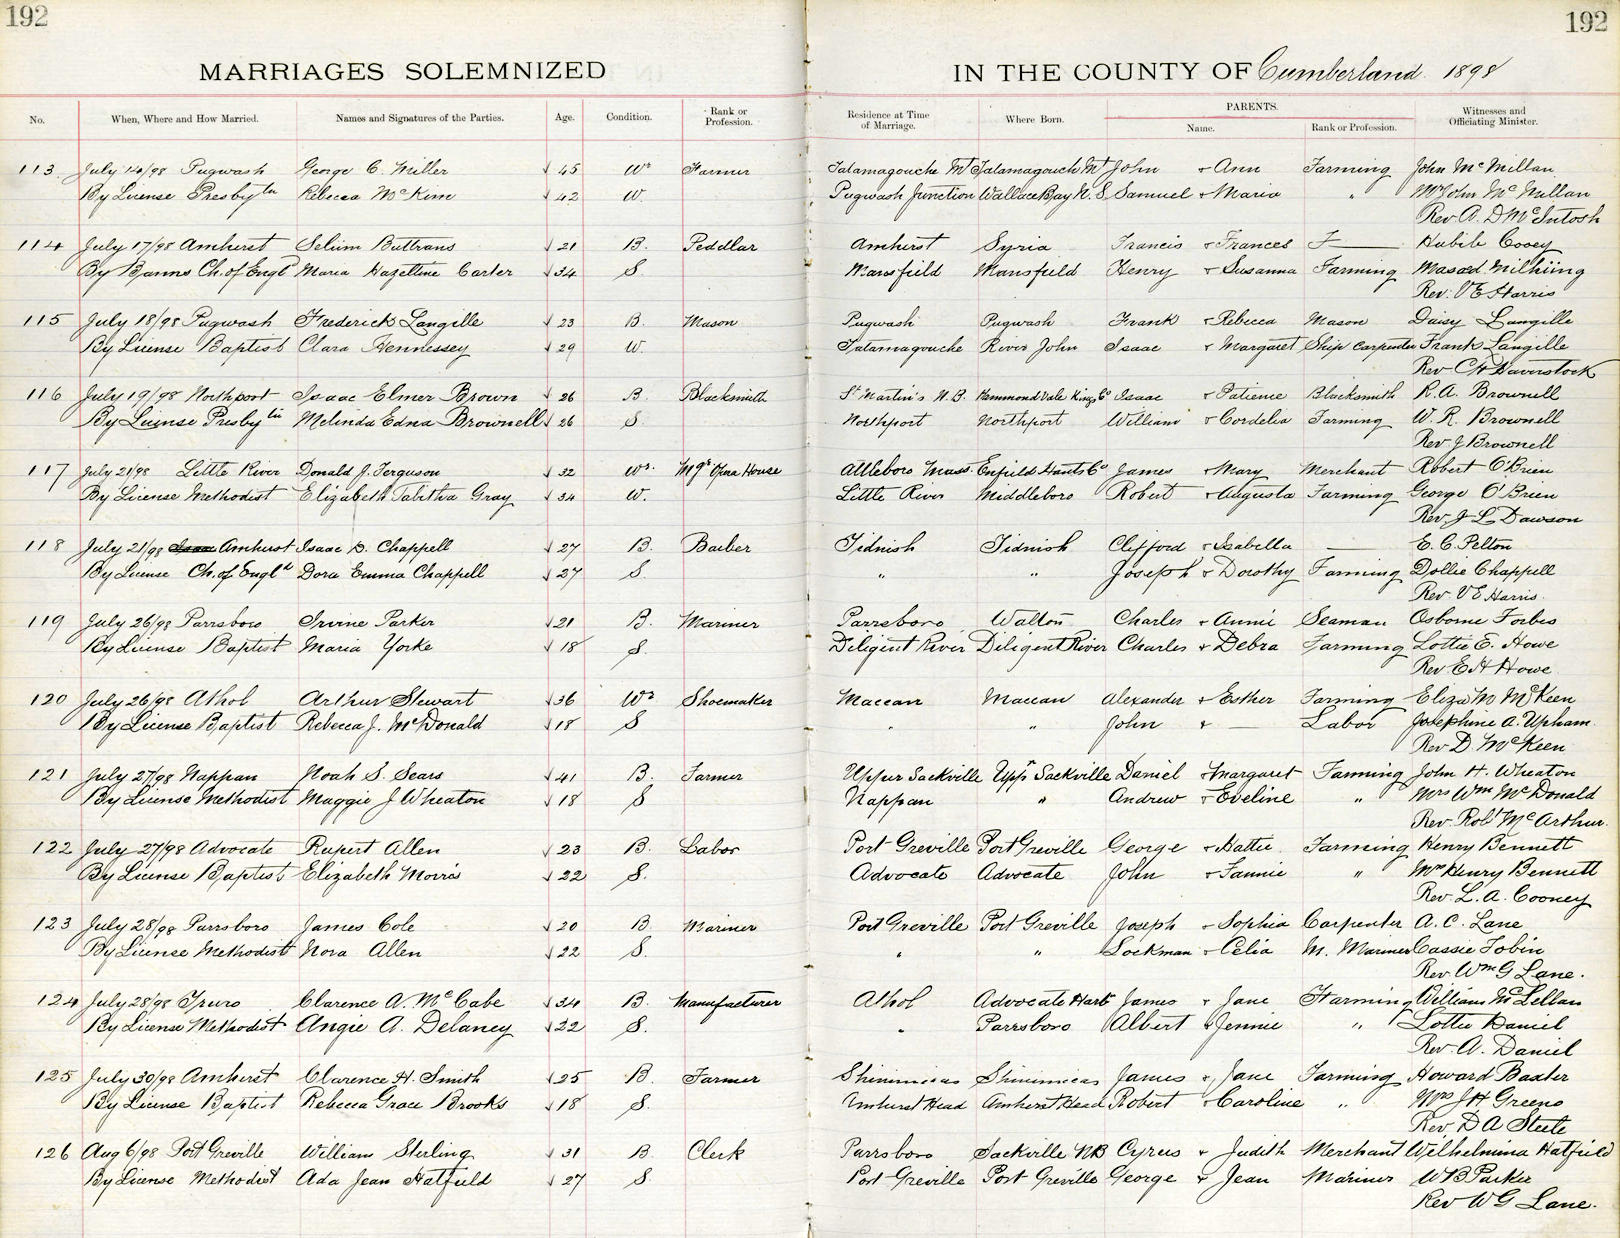 192
192
MARRIAGES SOLEMNIZED IN THE COUNTY OF Cumberland 1898
No. When, Where and How Married. Names and Signatures of the Parties. Age. Condition. Rank or Profession. Residence at Time of Marriage. Where Born. PARENTS. Name. Rank or Profession. Witnesses and Officiating Minister.
113 July 14/98 Pugwash George C. Miller 45 Wr Farmer Tatamagouche Mt Tatamagouch Mt John + Ann Farming John McMillan
By License Presbytn Rebecca McKim 42 W. Pugwash Junction Wallace Bay N.S. Samuel + Maria " Mrs John McMillan
Rev A. D McIntosh
114 July 17/98 Amherst Selum Buttrans 21 B. Peddlar Amherst Syria Francis + Frances F— Habib Cooey
By Banns Ch. of Engld Maria Hazeltine Carter 34 S. Mansfield Mansfield Henry + Susanna Farming Masaed Milhiing
Rev. V E Harris
115 July 18/98 Pugwash Frederick Langille 23 B. Mason Pugwash Pugwash Frank + Rebecca Mason Daisy Langille
By License Baptist Clara Hennessey 29 W. Tatamagouche River John Isaac + Margaret Ship Carpenter Frank Langille
Rev C H Haverstock
116 July 19/98 Northport Isaac Elmer Brown 26 B. Blacksmith St Martin's N.B. Hammond Vale Kings Co Isaac + Patience Blacksmith R. A. Brownell
By License Presbytn Melinda Edna Brownell 26 S. Northport Northport William + Cordelia Farming W. R. Brownell
Rev J Brownell
117 July 21/98 Little River Donald J. Ferguson 32 Wr. Mgr Opera House Attleboro Mass. Enfield Hants Co James + Mary Merchant Robert O'Brien
By License Methodist Elizabeth Tabitha Gray 34 W. Little River Middleboro Robert + Augusta Farming George O'Brien
Rev J L Dawson
118 July 21/98 Amherst Isaac B. Chappell 27 B. Barber Tidnish Tidnish Clifford + Isabella — E. C. Pelton
By License Ch. of Engld Dora Emma Chappell 27 S. " " Joseph + Dorothy Farming Dollie Chappell
Rev V E Harris.
119 July 26/98 Parrsboro Irvine Parker 21 B. Mariner Parrsboro Walton Charles + Annie Seaman Osborne Forbes
By License Baptist Maria Yorke 18 S. Diligent River Diligent River Charles + Debra Farming Lottie E. Howe
Rev E H Howe
120 July 26/98 Athol Arthur Stewart 36 Wr Shoemaker Maccan Maccan Alexander + Esther Farming Eliza M McKeen
By License Baptist Rebecca J. McDonald 18 S " " John + — Labor Josephine A. Upham
Rev D McKeen
121 July 27/98 Nappan Noah S. Sears 41 B. Farmer Upper Sackville Uppr Sackville Daniel + Margaret Farming John H. Wheaton
By License Methodist Maggie J Wheaton 18 S Nappan " Andrew + Eveline " Mrs Wm McDonald
Rev. Robt McArthur.
122 July 27/98 Advocate Rupert Allen 23 B. Labor Port Greville Port Greville George + Hattie Farming Henry Bennett
By License Baptist Elizabeth Morris 22 S. Advocate Advocate John + Fannie " Mrs Henry Bennett
Rev. L. A. Cooney
123 July 28/98 Parrsboro James Cole 20 B. Mariner Port Greville Port Greville Joseph + Sophia Carpenter A. C. Lane
By License Methodist Nora Allen 22 S. " " Lockman + Celia M. Mariner Cassie Tobin
Rev Wm G Lane.
124 July 28/98 Truro Clarence A. McCabe 34 B. Manufacturer Athol Advocate Harb James + Jane Farming William McLellan
By License Methodist Angie A. Delaney 22 S. " Parrsboro Albert + Jennie " Lottie Daniel
Rev. A. Daniel
125 July 30/98 Amherst Clarence H. Smith 25 B. Farmer Shinimicas Shinimicas James + Jane Farming Howard Baxter
By License Baptist Rebecca Grace Brooks 18 S. Amherst Head Amherst Head Robert + Caroline " Mrs J H Greeno
Rev D A Steele
126 Aug 6/98 Port Greville William Sterling 31 B. Clerk Parrsboro Sackville NB Cyrus + Judith Merchant Wilhelmina Hatfield
By License Methodist Ada Jean Hatfield 27 S Port Greville Port Greville George + Jean Mariner W B Parker
Rev W G Lane.